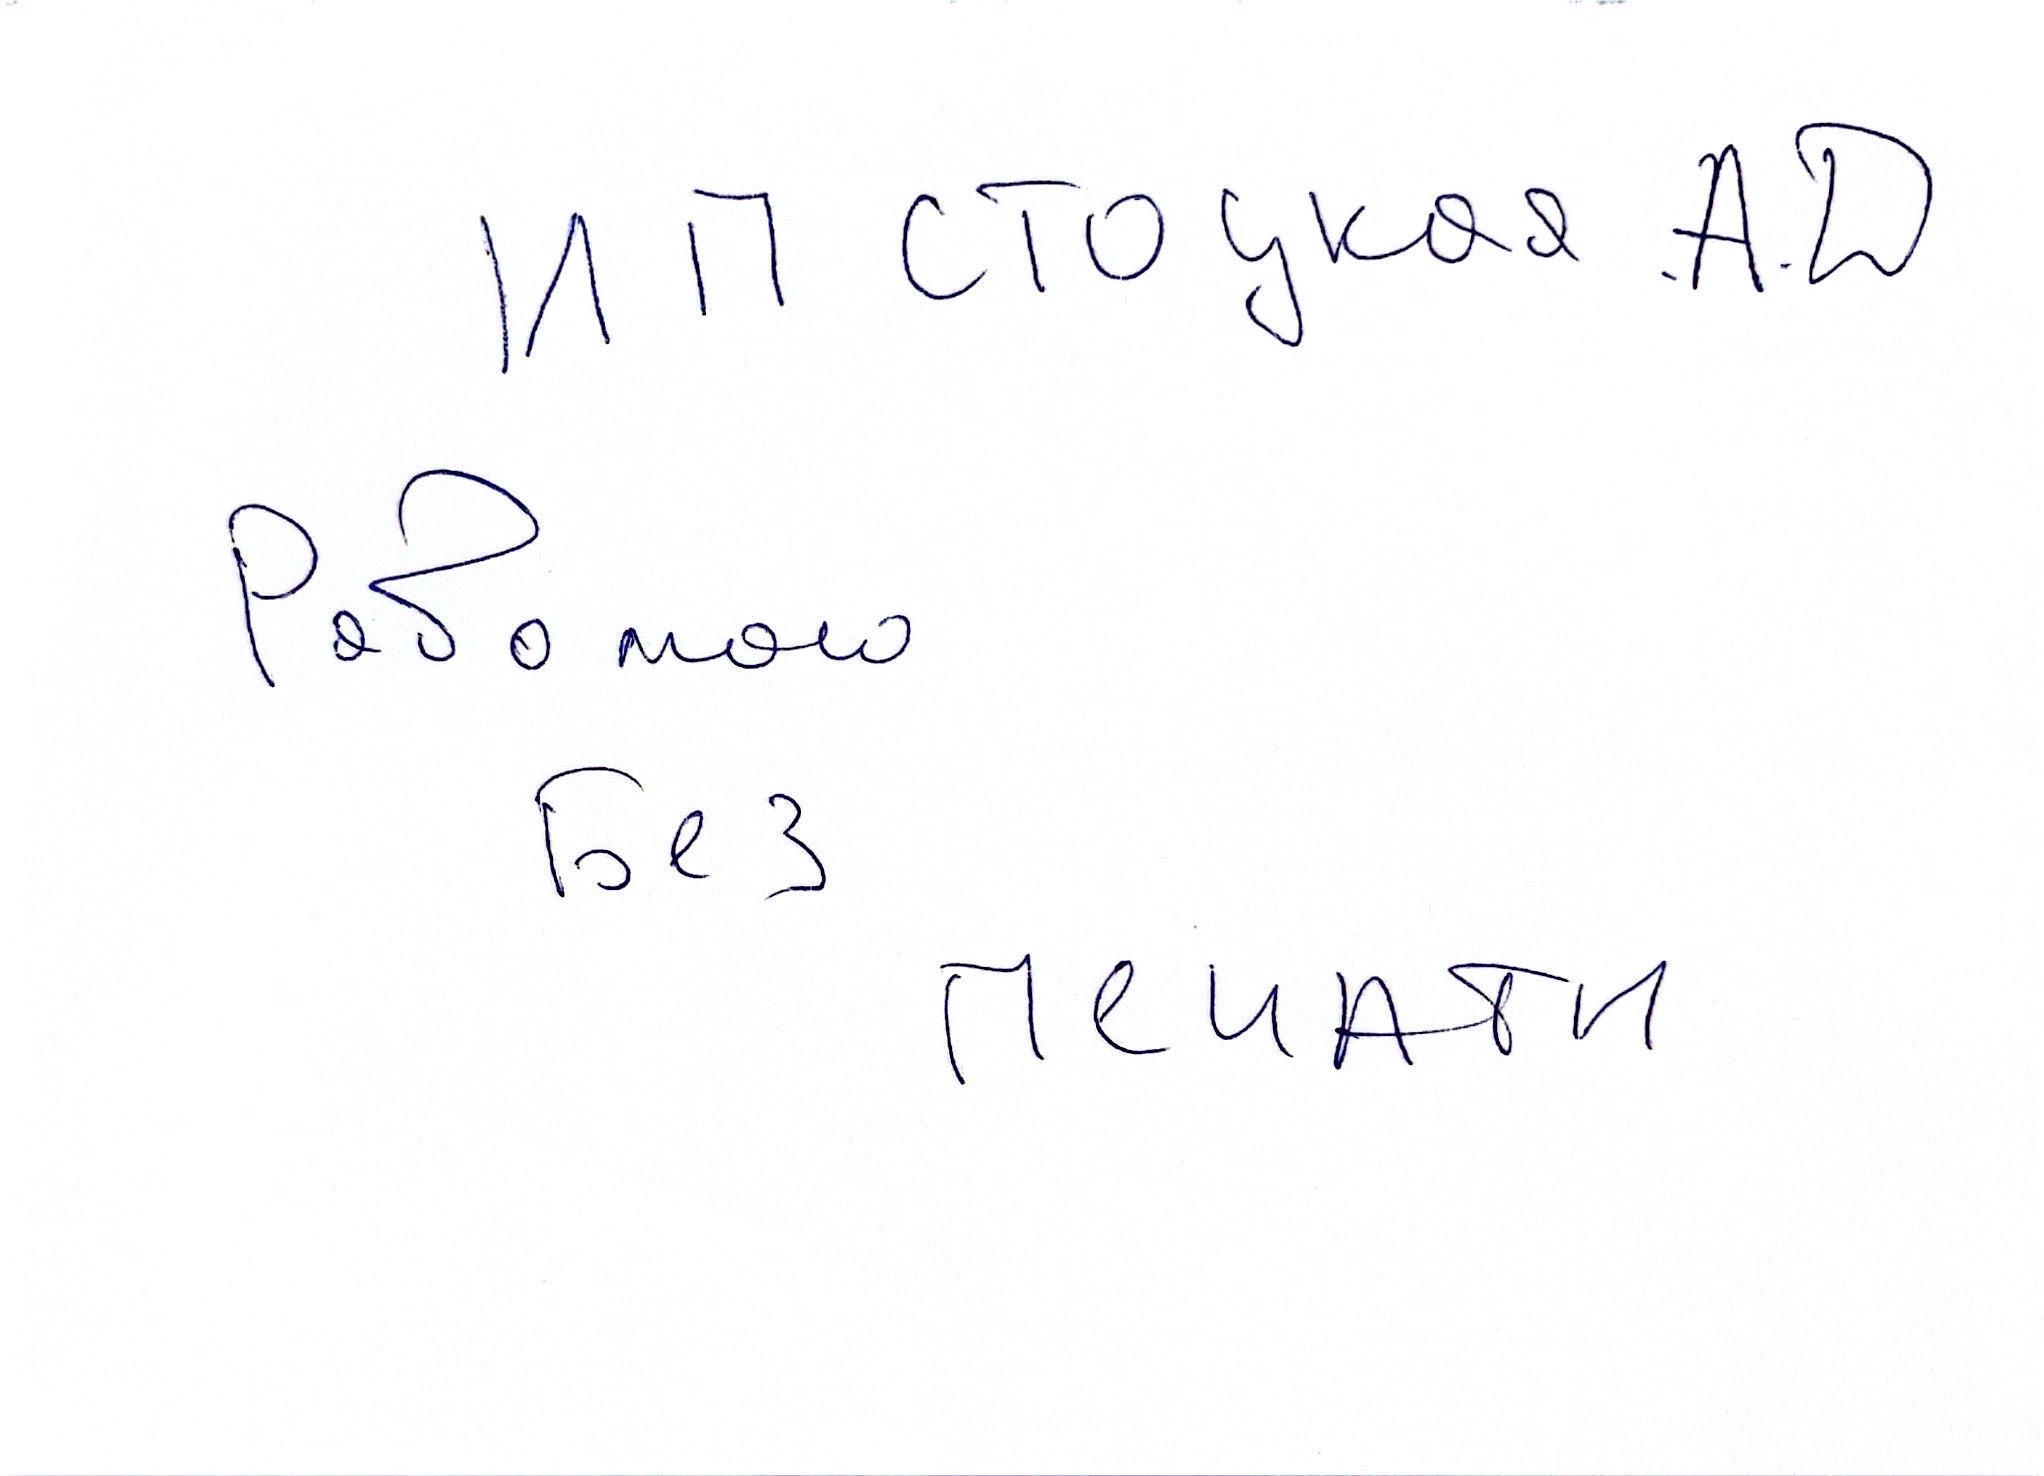 ИП Стоцкая А.Д
Работаю
Без
печати